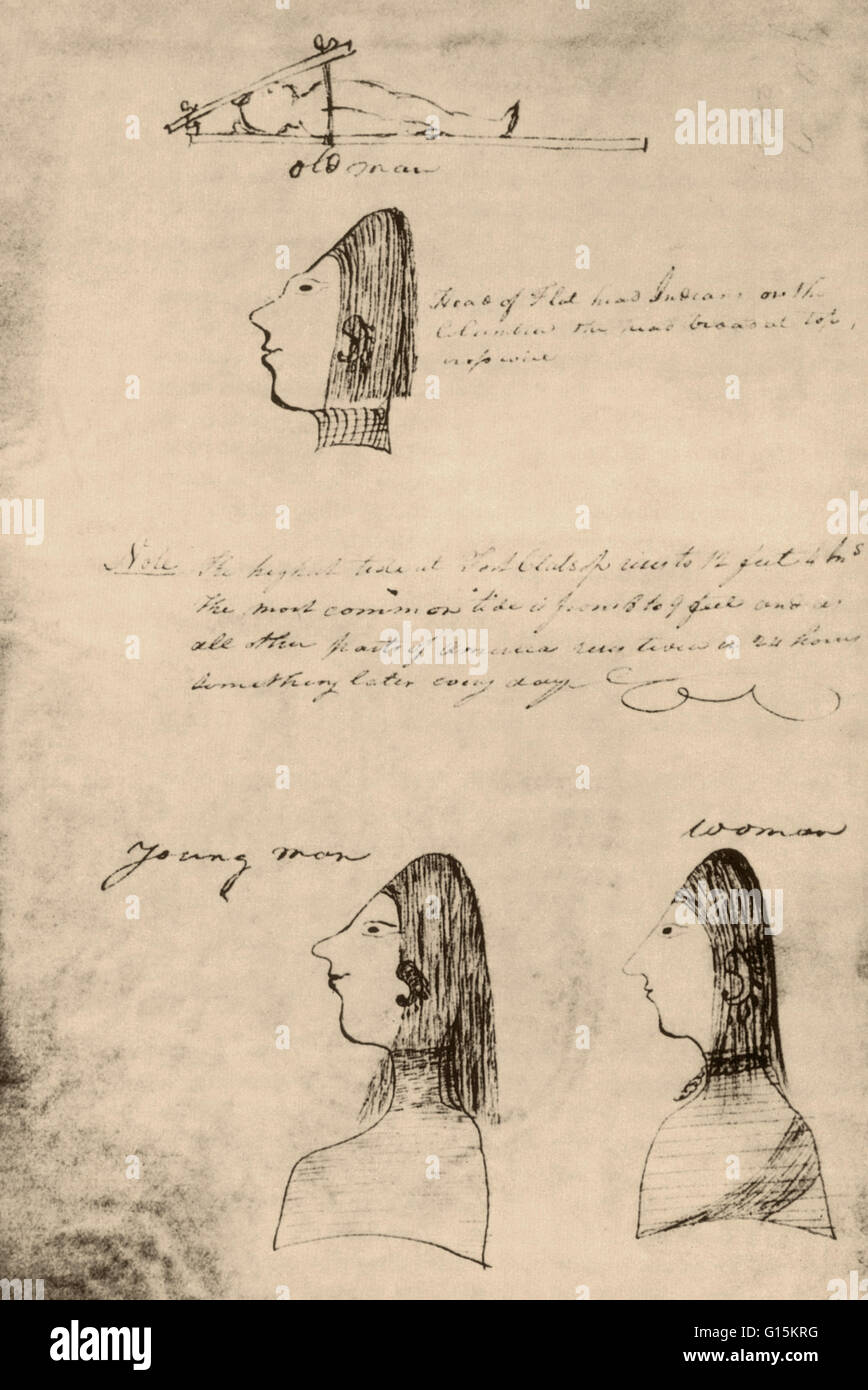 alamy
old man
Head of Flat head Indians on the
Columbia the head broad at top,
Note The highest tide at Fort Clatsop rises to 12 feet 4 Ins
The most common tide is from 8 to 9 feet and as
all other parts of America rises twice in 24 hours
something later every day
Young man
woman
alamy
Image ID: G15KRG
www.alamy.com